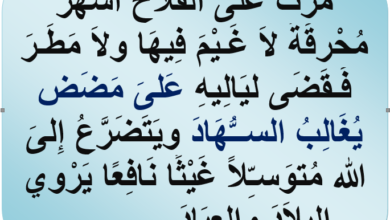 مَرَّتْ عَلَى الْفَلاَّحِ أَشْهُرٌ
مُحْرِقَةٌ لاَ غَيْمَ فِيهَا ولاَ مَطَرَ
فَقَضَى لَيَالِيهِ عَلىَ مَضَضٍ
يُغَالِبُ السُّهَادَ ويَتَضَرَّعُ إلىَ
الله مُتوَسِّلاً غَيْثًا نَافِعًا يَرْوي
البلاَدَ والعبَادَ